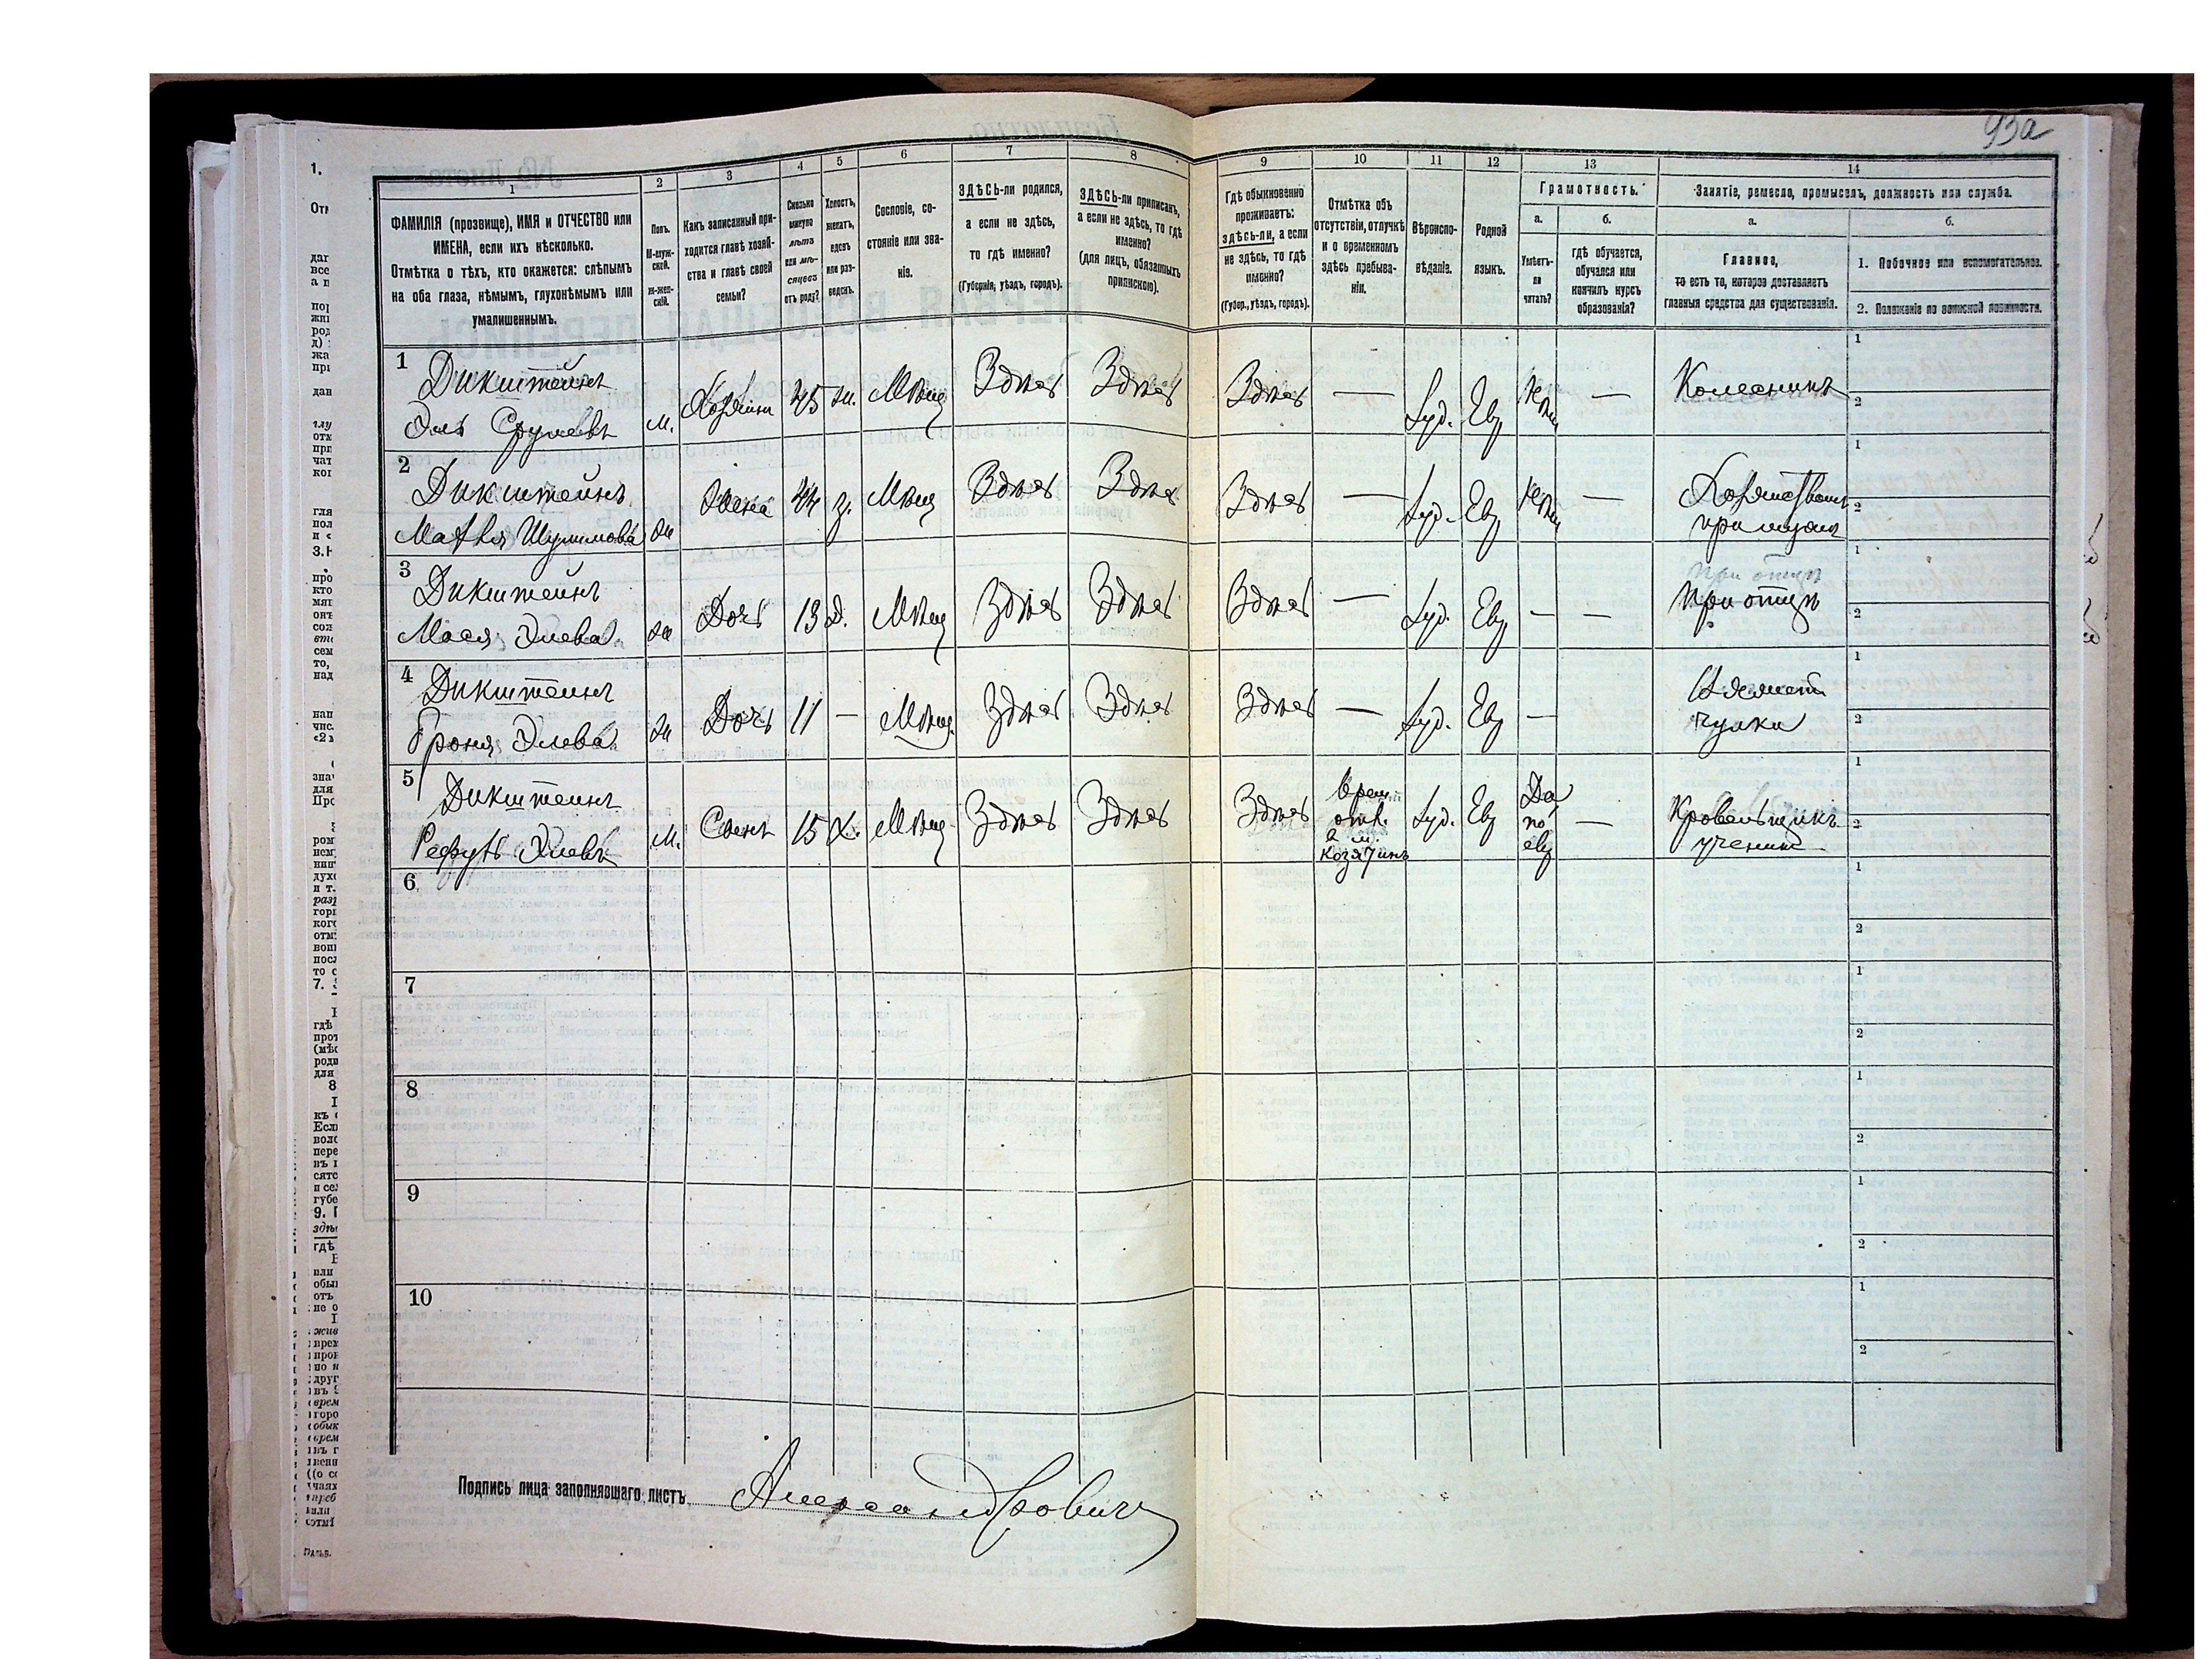 93а
1 2 3 4 5 6 7 8 9 10 11 12 13 14
ФАМИЛІЯ (прозвище), ИМЯ и ОТЧЕСТВО или
ИМЕНА, если ихъ нѣсколько.
Отмѣтка о тѣхъ, кто окажется: слѣпымъ
на оба глаза, нѣмымъ, глухонѣмымъ или
умалишеннымъ.
Полъ.
М-муж-
ской.
Ж-жен-
скій.
Какъ записанный при-
ходится главѣ хозяй-
ства и главѣ своей
семьи?
Сколько
минуло
лѣтъ
или мѣ-
сяцевъ
отъ роду?
Холостъ,
женатъ,
вдовъ
или раз-
веденъ.
Сословіе, со-
стояніе или зва-
ніе.
ЗДѢСЬ-ли родился,
а если не здѣсь,
то гдѣ именно?
(Губернія, уѣздъ, городъ).
ЗДѢСЬ-ли приписанъ,
а если не здѣсь, то гдѣ
именно?
(для лицъ, обязанныхъ
припискою).
Гдѣ обыкновенно
проживаетъ:
здѣсь-ли, а если
не здѣсь, то гдѣ
именно?
(Губер., уѣздъ, городъ).
Отмѣтка объ
отсутствіи, отлучкѣ
и о временномъ
здѣсь пребыва-
ніи.
Вѣроиспо-
вѣданіе.
Родной
языкъ.
Грамотность.
а.
Умѣетъ-
ли
читать?
б.
гдѣ обучается,
обучался или
кончилъ курсъ
образованія?
Занятіе, ремесло, промыселъ, должность или служба.
а.
Главное,
то есть то, которое доставляетъ
главныя средства для существованія.
б.
1. Побочное или вспомогательное.
2. Положеніе по воинской повинности.
1 Дикштейнъ
Эль Срулевъ м. Хозяинъ 45 ж. Мѣщ Здѣсь Здѣсь Здѣсь — Іуд. Евр Нѣтъ — Колесникъ
1
2
2 Дикштейнъ
Шулимова ж Жена 44 з. Мѣщ Здѣсь Здѣсь Здѣсь — Іуд. Евр Нѣтъ — Хозяйствомъ
при мужѣ
1
2
3 Дикштейнъ
Мася Элева ж Дочь 13 д. Мѣщ Здѣсь Здѣсь Здѣсь — Іуд. Евр — — При отцѣ
1
2
4 Дикштейнъ
Броня Элева ж Дочь 11 — Мѣщ. Здѣсь Здѣсь Здѣсь — Іуд. Евр —
чулки
1
2
5 Дикштейнъ
Элевъ м. Сынъ 15 х. Мѣщ Здѣсь Здѣсь Здѣсь
Врем.
отл.
в м.
Козятинъ
Іуд. Евр
Да
по
евр
—
Кровельщикъ
ученик
1
2
6
1
2
7
1
2
8
1
2
9
1
2
10
1
2
Подпись лица заполнявшаго листъ Александровичъ